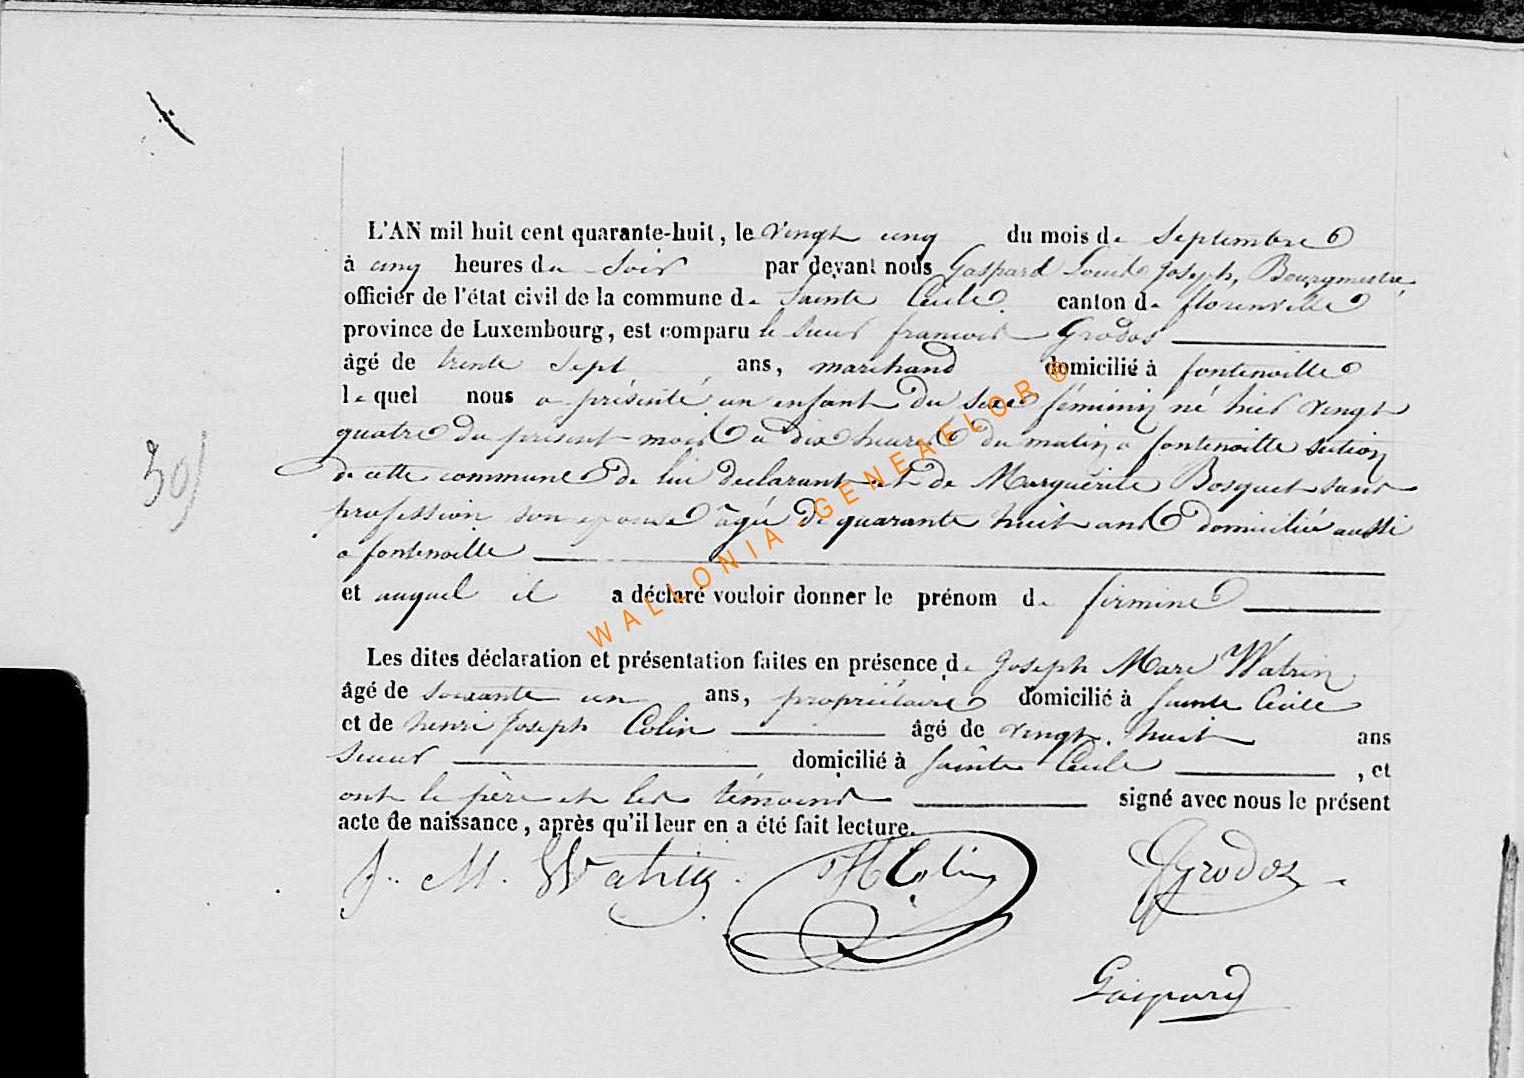 L'AN mil huit cent quarante-huit, le vingt cinq du mois de Septembre
à cinq heures du Soir par devant nous Gaspard Louis Joseph, Bourgmestre,
officier de l'état civil de la commune de Sainte Cécile canton de florenville
province de Luxembourg, est comparu le sieur francois Grodos
âgé de trente Sept ans, marchand domicilié à fontenoille
lequel nous a présenté un enfant du sexe féminin né hier vingt
quatre du présent mois a dix heures du matin a fontenoille section
de cette commune de lui declarant et de Marguérite Bosquet sans
profession son epouse âgée de quarante huit ans domiciliée aussi
a fontenoille
et auquel il a déclaré vouloir donner le prénom de firmine
Les dites déclaration et présentation faites en présence de Joseph Marc Watrin
âgé de soixante un ans, propriétaire domicilié à Sainte Cécile
et de henri Joseph Colin âgé de vingt huit ans
domicilié à Sainte Cécile , et
ont le père et les témoins signé avec nous le présent
acte de naissance, après qu'il leur en a été fait lecture.
J. M. Watrin HColin Grodos
Gaspard
30
WALLONIA-GENEAFLOR®